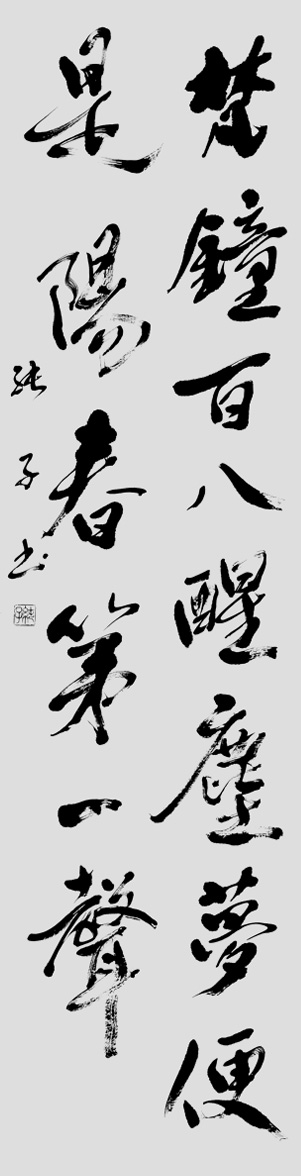 梵鐘百八醒塵夢便
是陽春第一聲
張子書